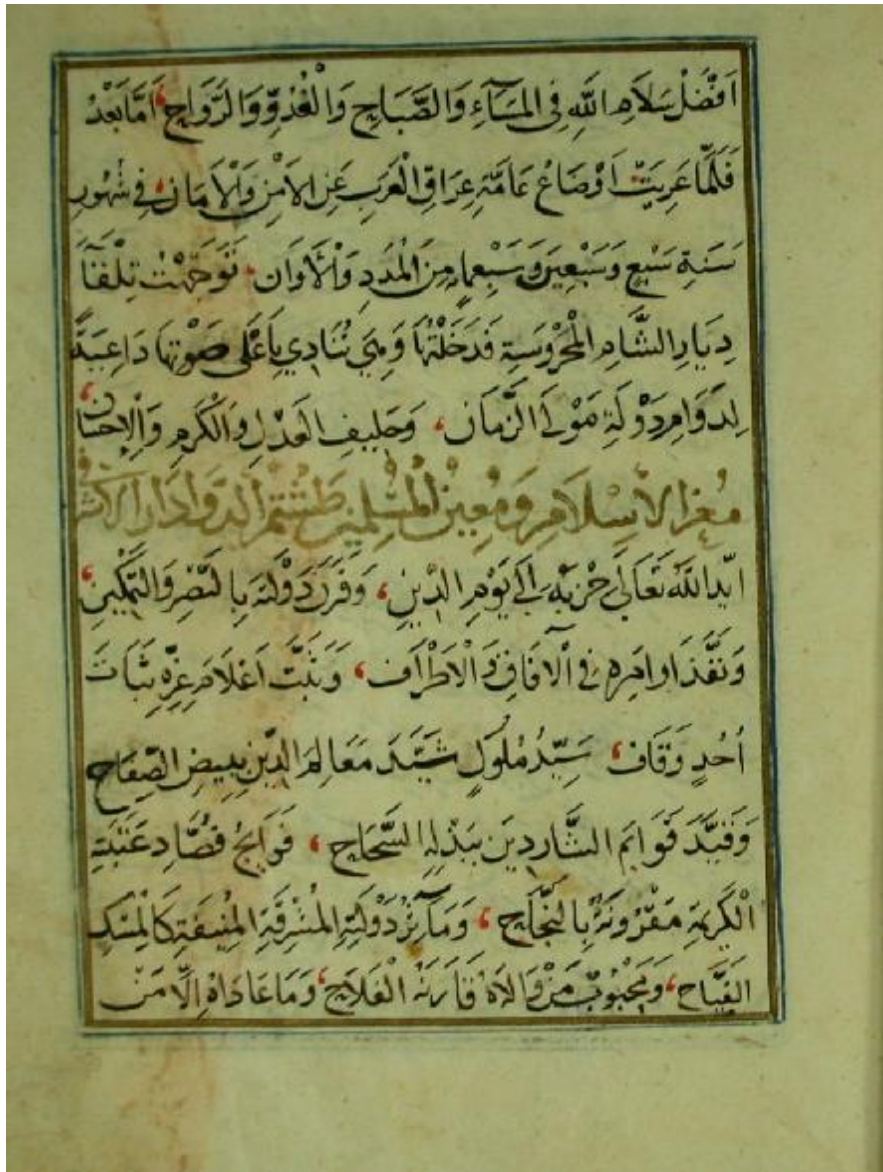 اَفْضَلُ سَلَامِ اللّٰهِ فِى المَسَآءِ وَالصَّبَاحِ وَالْغُدُوِّ وَالرَّوَاحِ، اَمَّابَعْدُ
فَلَمَّا عَرِيَتْ اَوْضَاعُ عَامَّةِ عِرَاقِ الْعَرَبِ عَنِ الاَمْنِ وَالْاَمَانِ، فِى شُهُورِ
سَنَةِ سَبْعٍ وَسَبْعِينَ وَسَبْعِمايةٍ مِنَ الْمُدَدِ وَالْأَوَانِ، تَوَجَّهْتُ تِلْقَآءَ
دِيَارِ الشَّامِ الْمَحْرُوسَةِ فَدَخَلْتُهَا وَهِىَ تُنَادِي بِاَعْلَى صَوْتِهَا دَاعِيَةً
لِدَوَامِ دَوْلَةِ مَوْلَى الزَّمَانِ، وَحَلِيفِ العَدْلِ وَالْكَرَمِ وَالْاِحْسَانِ،
مُعِزِّ الْاِسْلَامِ وَمُعِينِ الْمُسْلِمِينَ طَشْتَمُر الدَّوَادَارِ الْاَشْرَفِى
اَيَّدَ اللّٰهُ تَعَالَى حِزْبَهُ اِلَى يَوْمِ الدِّينِ، وَقَرَنَ دَوْلَتَهُ بِالنَّصْرِ وَالتَّمْكِينِ،
وَنَفَّذَ اَوامِرَهُ فِى الْآفَاقِ وَالْاَطْرَافِ، وَثَبَّتَ اَعْلَامَ عِزِّهِ ثَبَاتَ
اُحُدٍ وَقَافٍ، سَيِّدُ مُلُوكٍ شَيَّدَ مَعَالِمَ الدِّينِ بِبِيضِ الصِّفَاحِ
وَقَيَّدَ قَوَايِمَ الشَّارِدِينَ بِبَذْلِهِ السَّحَّاحِ، حَوَايِجُ قُصَّادِ عَتَبَتِهِ
الْكَرِيمَةِ مَقْرُونَةٌ بِالنَّجَاحِ، وَمَآثِرُ دَوْلَتِهِ الْمُشْرِقَةِ الْمُنِيفَةِ كَالْمِسْكِ
الفَيَّاحِ، وَمَحْبُوبُ مَنْ وَالَاهُ قَارَنَهُ الْفَلَاحُ، وَمَا عَادَاهُ اِلَّا مَنْ